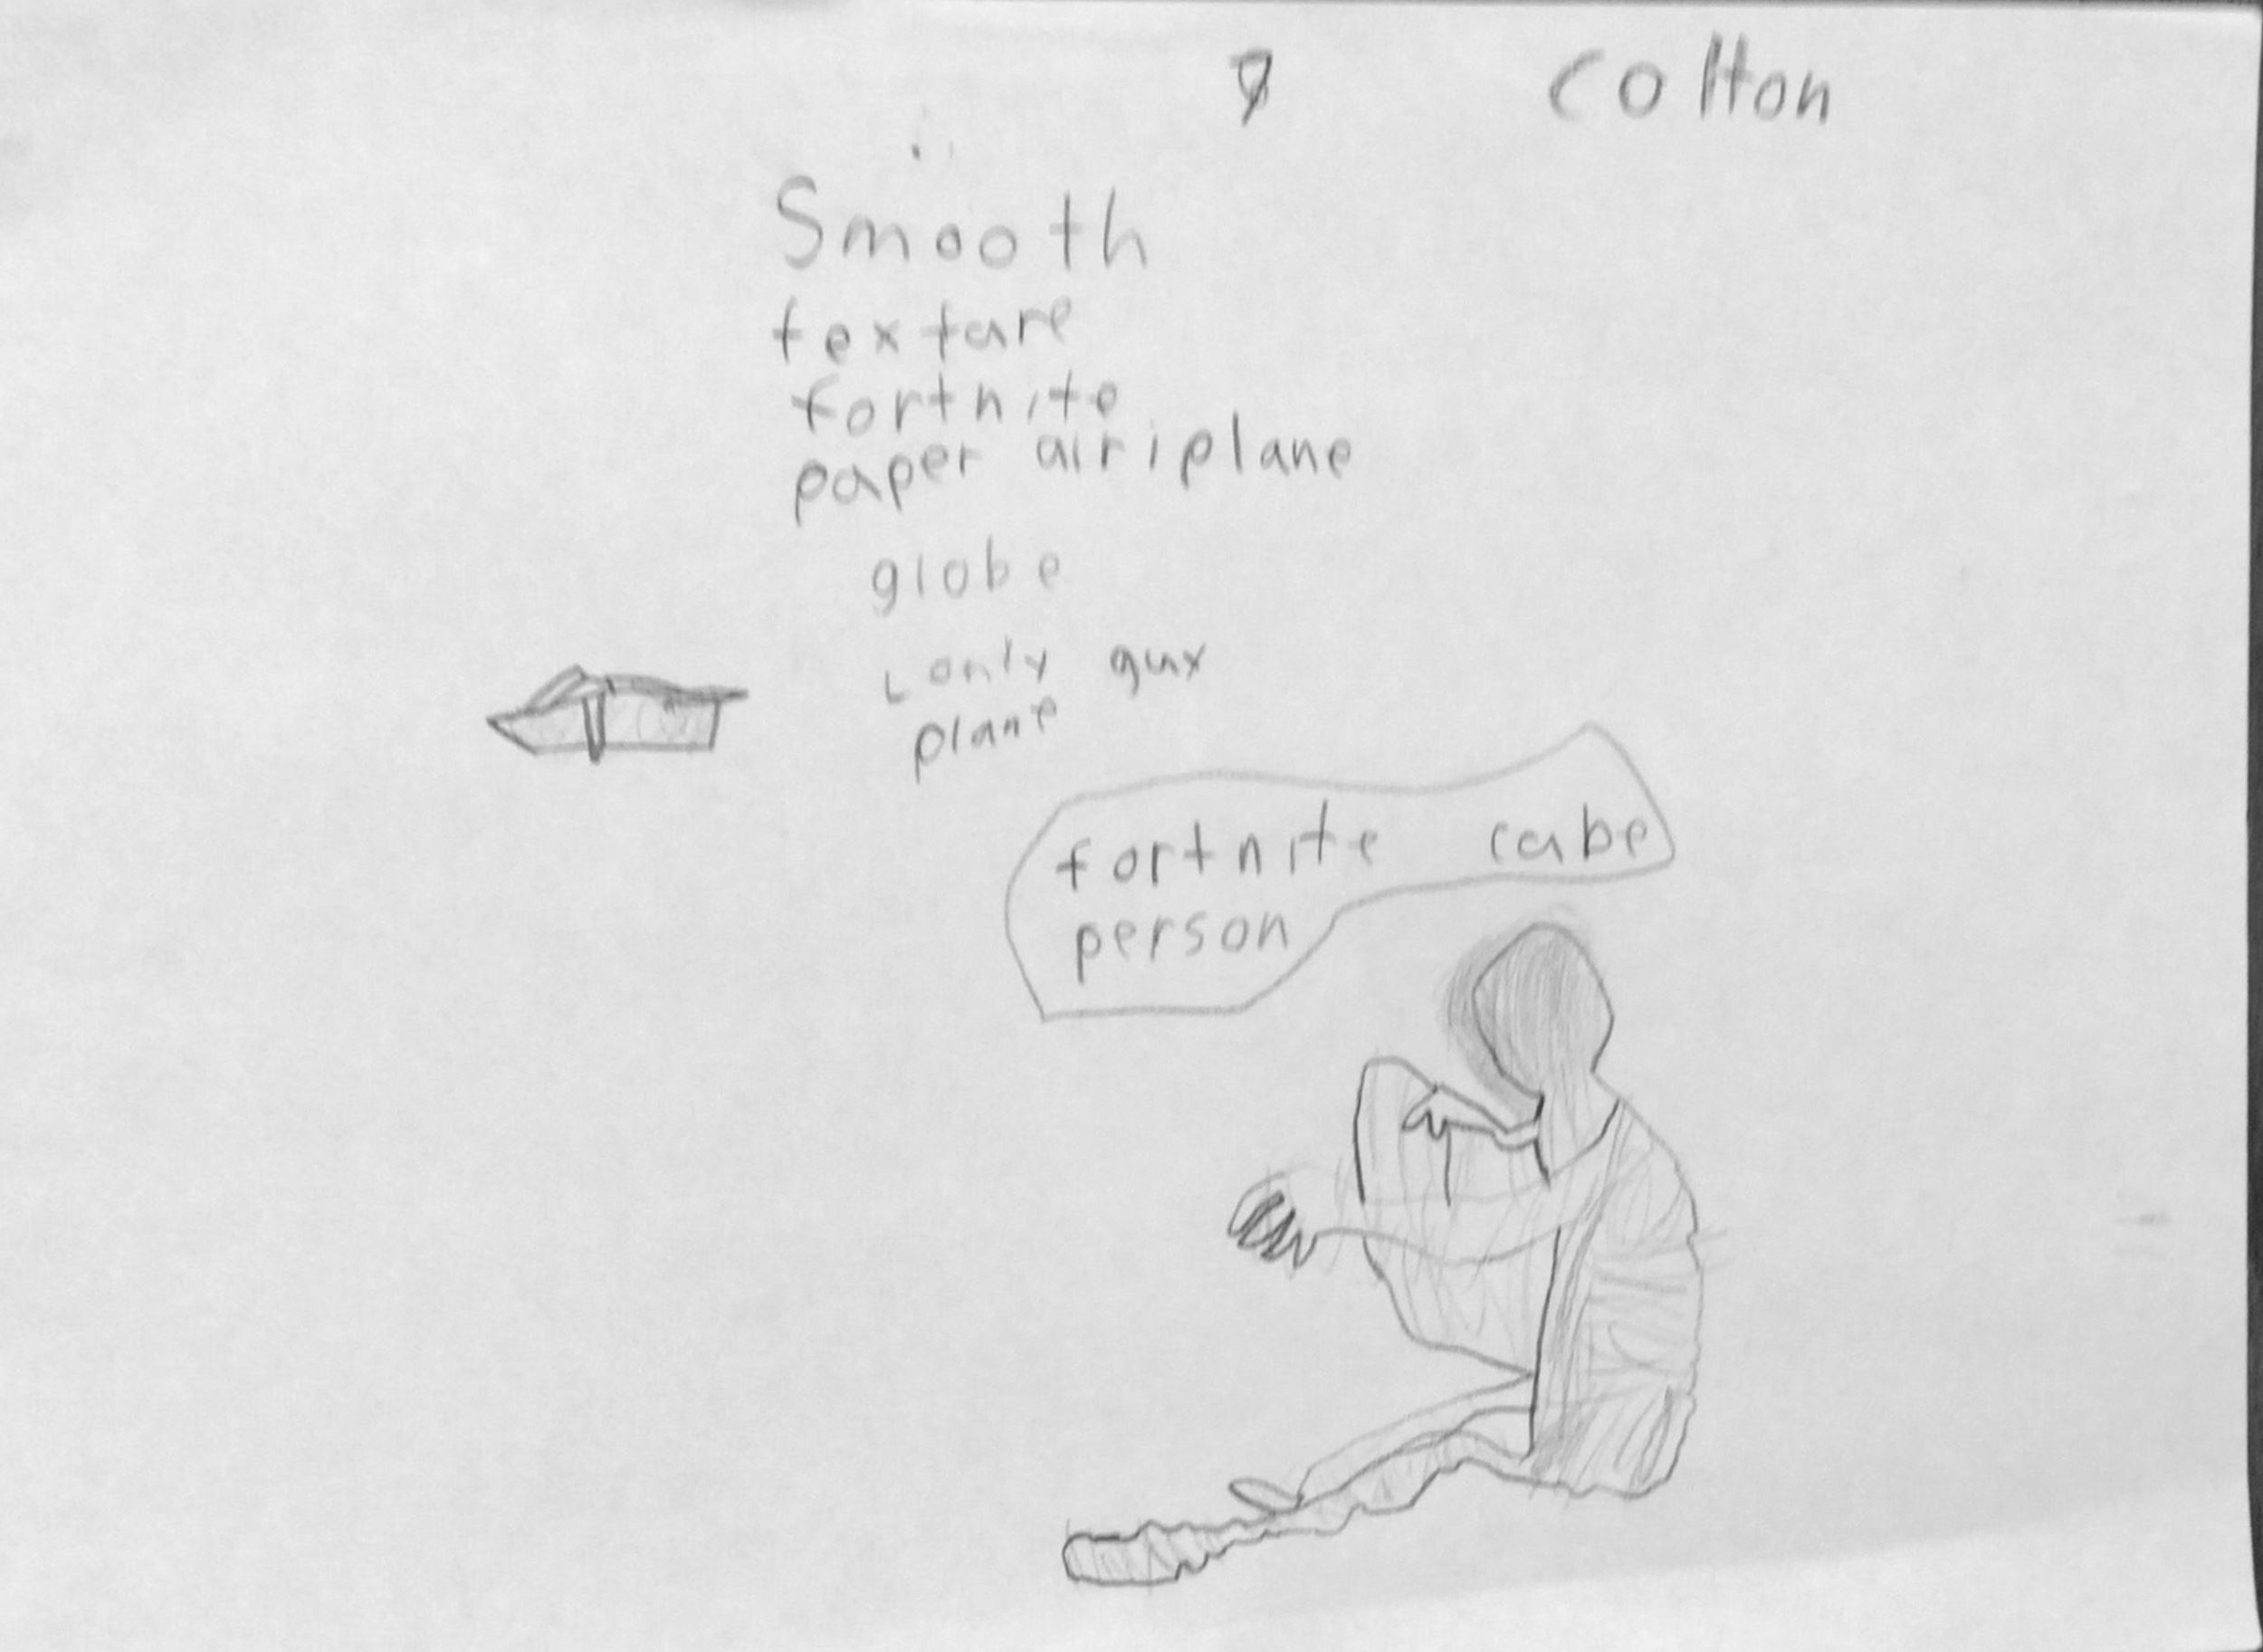 colton
Smooth
textare
fortnite
paper airiplane
globe
only
plane
fortnite cabe
person